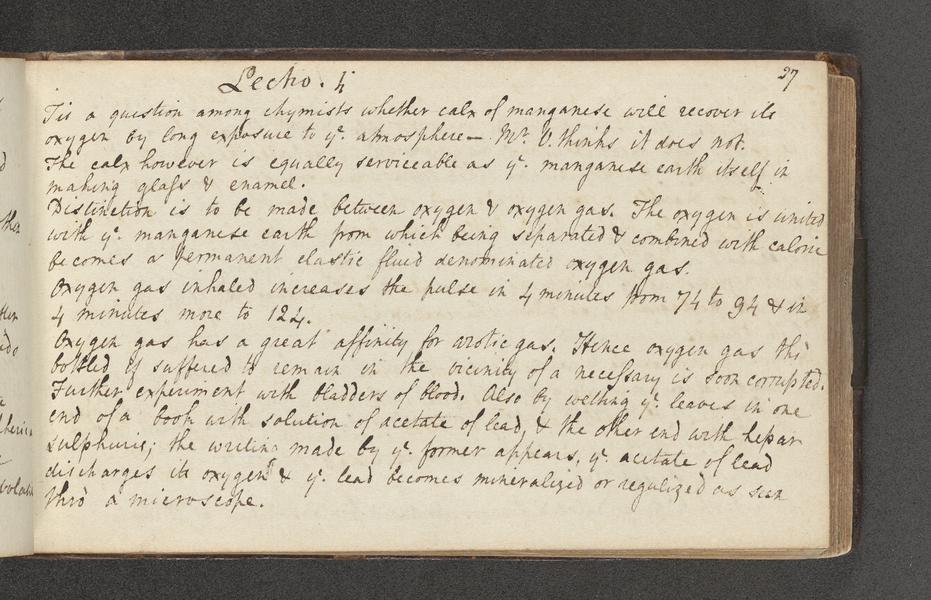 27
Lectio. 4
'Tis a question among chymists whether calx of manganese will recover its
oxygen by long exposure to ye. atmosphere— Mr. V. thinks it does not.
The calx however is equally serviceable as ye. manganese earth itself in
making glass & enamel.
Distinction is to be made between oxygen & oxygen gas. The oxygen is united
with ye. manganese earth from which being separated & combined with caloric
becomes a permanent elastic fluid denominated oxygen gas.
Oxygen gas inhaled increases the pulse in 4 minutes from 74 to 94 & in
4 minutes more to 124.
Oxygen gas has a great affinity for azotic gas. Hence oxygen gas tho'
bottled if suffered to remain in the vicinity of a necessary is soon corrupted.
Further experiment with bladders of blood. Also by wetting ye. leaves in one
end of a book with solution of acetate of lead, & the other end with hepar
sulphuris; the writing made by ye. former appears, ye. acetate of lead
discharges its oxygen & ye. lead becomes mineralized or regulized as seen
thro' a microscope.